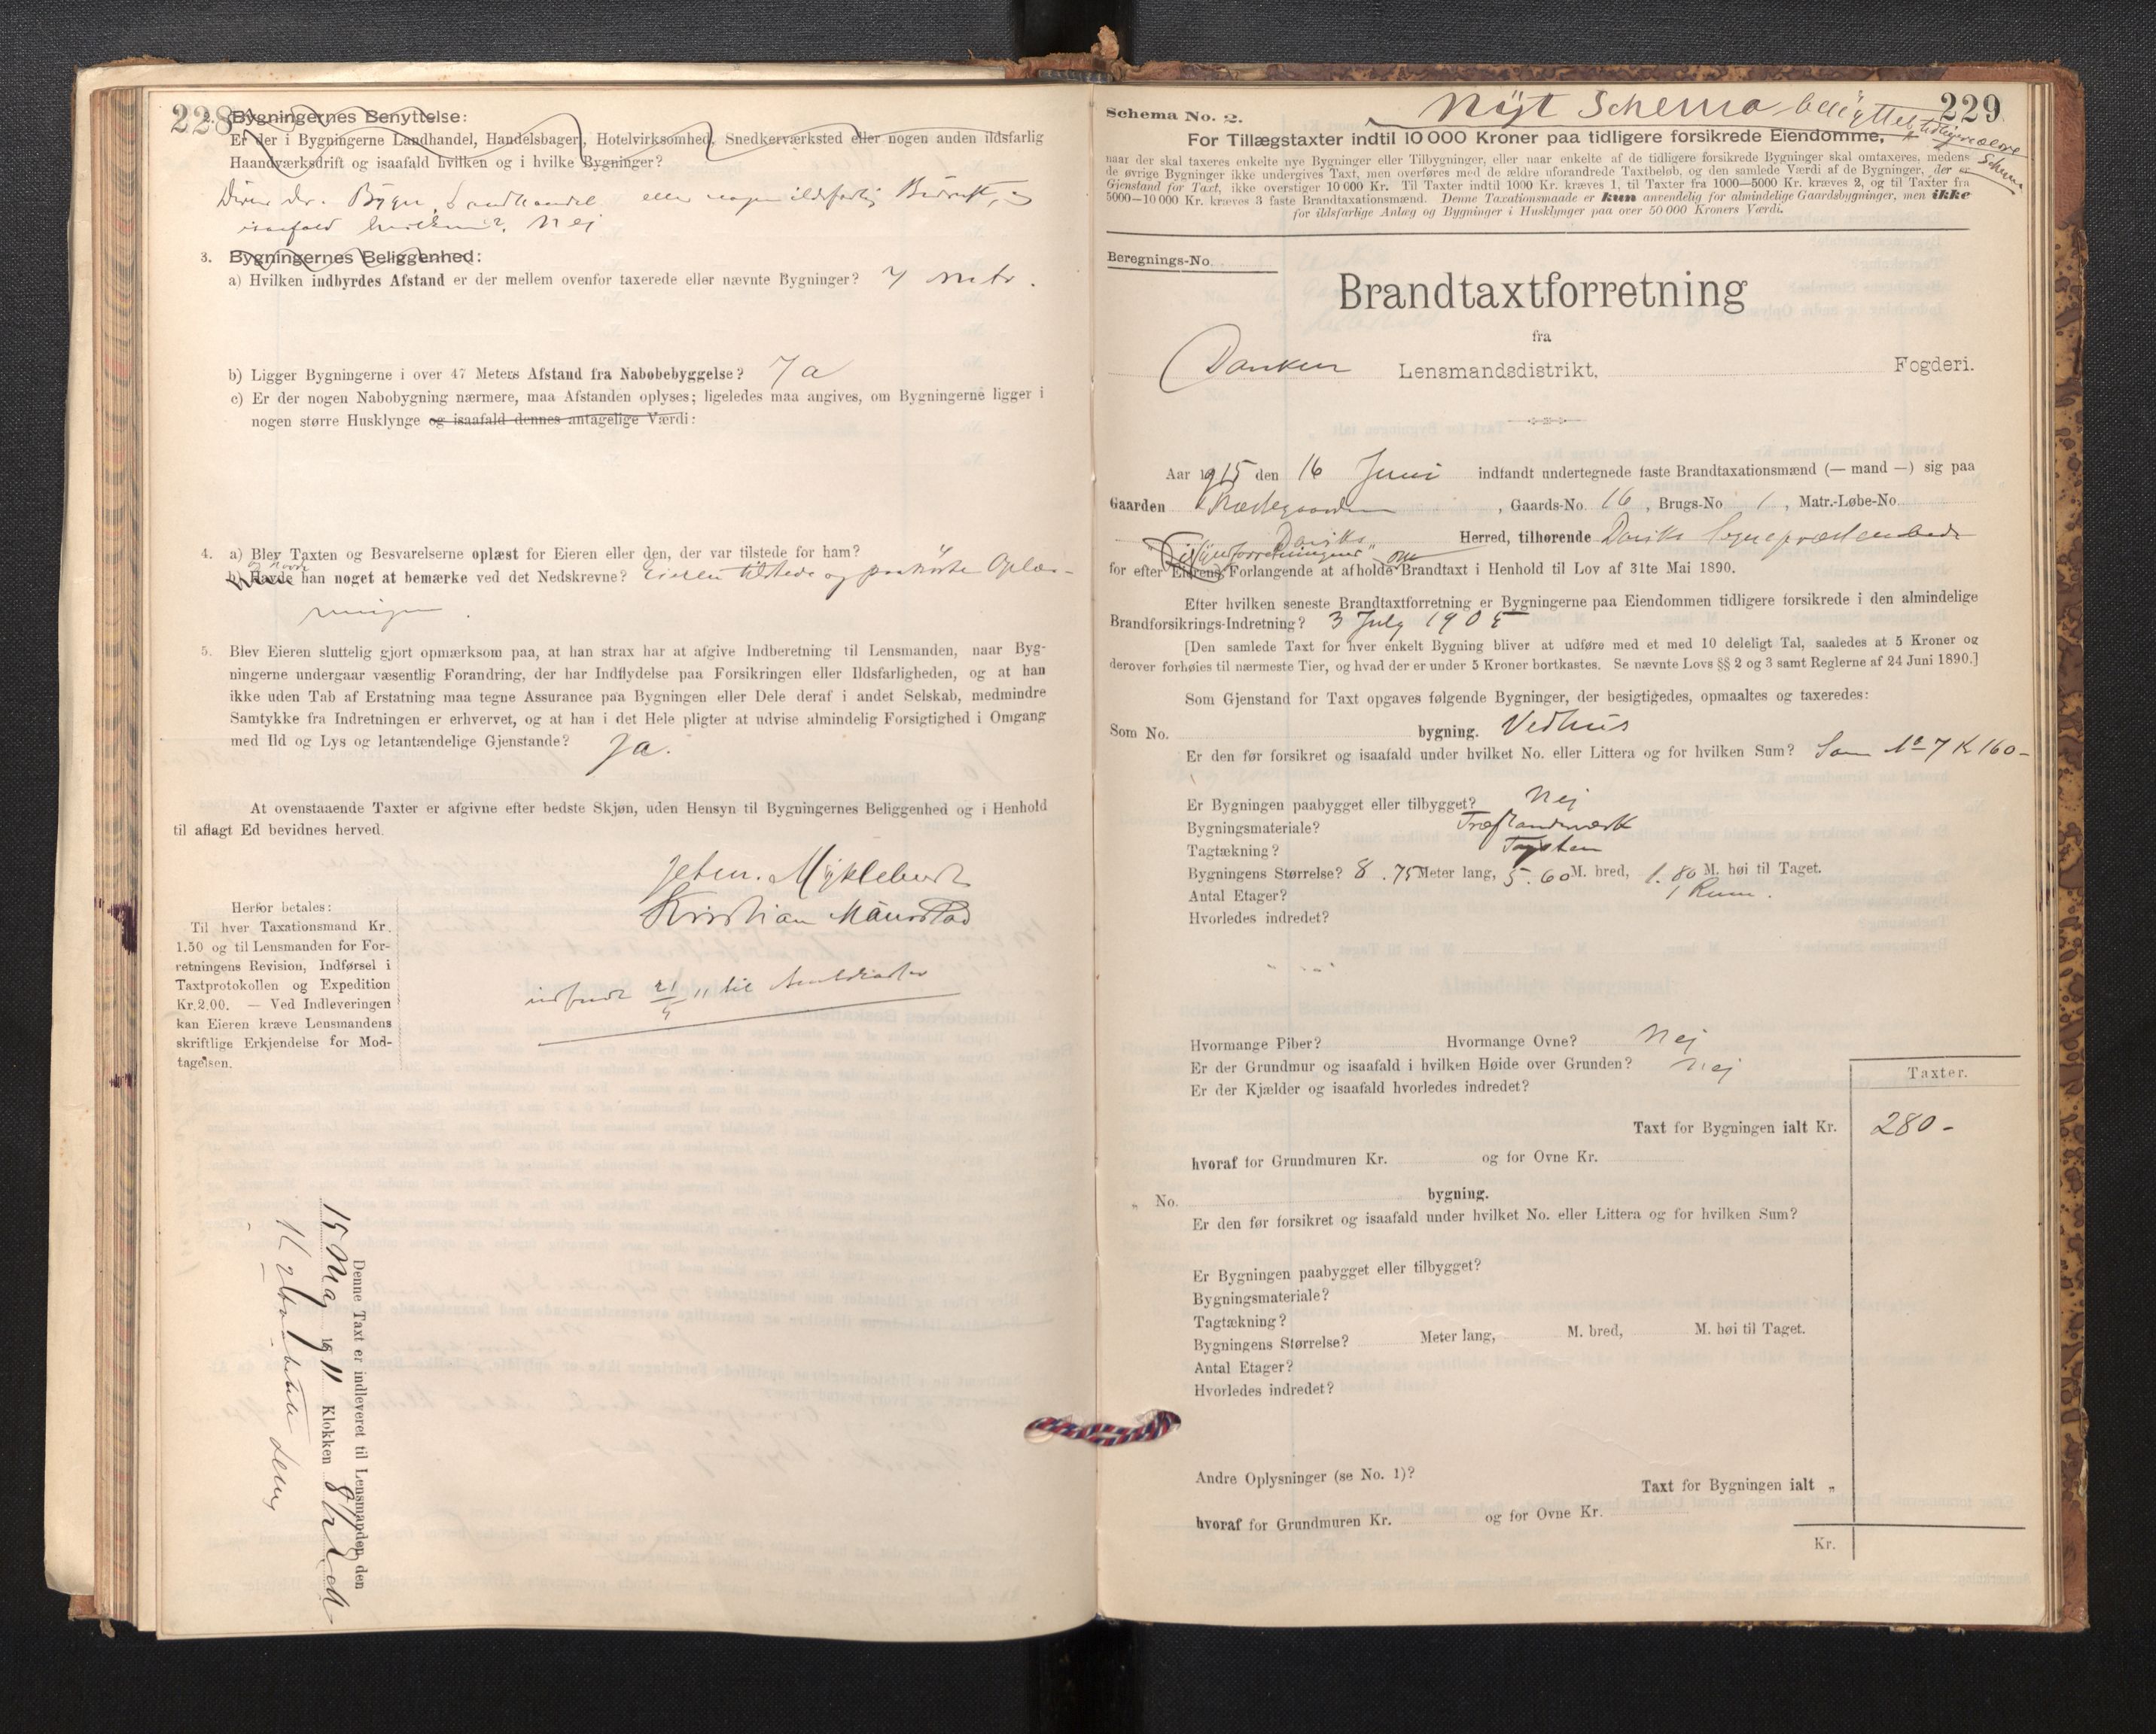 228
2. Bygningernes Benyttelse:
Er der i Bygningerne Landhandel, Handelsbager, Hotelvirksomhed, Snedkerværksted eller nogen anden ildsfarlig
Haandværksdrift og isaafald hvilken og i hvilke Bygninger?
Bygn. Landhandel eller nogen ildsfarlig Bedrift, og
isaafald hvilken? Nej
3. Bygningernes Beliggenhed:
a) Hvilken indbyrdes Afstand er der mellem ovenfor taxerede eller nævnte Bygninger? 7 Metr.
b) Ligger Bygningerne i over 47 Meters Afstand fra Nabobebyggelse? Ja
c) Er der nogen Nabobygning nærmere, maa Afstanden oplyses; ligeledes maa angives, om Bygningerne ligger i
nogen større Husklynge og isaafald dennes antagelige Værdi:
4. a) Blev Taxten og Besvarelserne oplæst for Eieren eller den, der var tilstede for ham?
b) Havde han noget at bemærke ved det Nedskrevne? Eieren tilstede og paahørte Oplæs-
ningen.
5. Blev Eieren sluttelig gjort opmærksom paa, at han strax har at afgive Indberetning til Lensmanden, naar Byg-
ningerne undergaar væsentlig Forandring, der har Indflydelse paa Forsikringen eller Ildsfarligheden, og at han
ikke uden Tab af Erstatning maa tegne Assurance paa Bygningen eller Dele deraf i andet Selskab, medmindre
Samtykke fra Indretningen er erhvervet, og at han i det Hele pligter at udvise almindelig Forsigtighed i Omgang
med Ild og Lys og letantændelige Gjenstande? Ja.
At ovenstaaende Taxter er afgivne efter bedste Skjøn, uden Hensyn til Bygningernes Beliggenhed og i Henhold
til aflagt Ed bevidnes herved.
Myklebust
Kristian Maurstad
Herfor betales:
Til hver Taxationsmand Kr.
1.50 og til Lensmanden for For-
retningens Revision, Indførsel i
Taxtprotokollen og Expedition
Kr. 2.00. — Ved Indleveringen
kan Eieren kræve Lensmandens
skriftlige Erkjendelse for Mod-
tagelsen.
indsendt 21/5 11 til
Denne Taxt er indleveret til Lensmanden den
15 Maj 1911 Klokken 8
229
Nyt Schema benyttet
tidligere ældre
Schema
Schema No. 2.
For Tillægstaxter indtil 10 000 Kroner paa tidligere forsikrede Eiendomme,
naar der skal taxeres enkelte nye Bygninger eller Tilbygninger, eller naar enkelte af de tidligere forsikrede Bygninger skal omtaxeres, medens
de øvrige Bygninger ikke undergives Taxt, men overføres med de ældre uforandrede Taxtbeløb, og den samlede Værdi af de Bygninger, der er
Gjenstand for Taxt, ikke overstiger 10 000 Kr. Til Taxter indtil 1000 Kr. kræves 1, til Taxter fra 1000—5000 Kr. kræves 2, og til Taxter fra
5000—10 000 Kr. kræves 3 faste Brandtaxationsmænd. Denne Taxationsmaade er kun anvendelig for almindelige Gaardsbygninger, men ikke
for ildsfarlige Anlæg og Bygninger i Husklynger paa over 50 000 Kroners Værdi.
Beregnings-No.
Brandtaxtforretning
fra
Lensmandsdistrikt, Fogderi.
Aar 1915 den 16 Juni indfandt undertegnede faste Brandtaxationsmænd (— mand —) sig paa
Gaarden Prestegaarden, Gaards-No. 16, Brugs-No. 1, Matr.-Løbe-No.
Daviks Herred, tilhørende Daviks Sogneprestembede
for efter Eierens Forlangende at afholde Brandtaxt i Henhold til Lov af 31te Mai 1890.
Efter hvilken seneste Brandtaxtforretning er Bygningerne paa Eiendommen tidligere forsikrede i den almindelige
Brandforsikrings-Indretning? 3 July 1905
[Den samlede Taxt for hver enkelt Bygning bliver at udføre med et med 10 deleligt Tal, saaledes at 5 Kroner og
derover forhøies til nærmeste Tier, og hvad der er under 5 Kroner bortkastes. Se nævnte Lovs §§ 2 og 3 samt Reglerne af 24 Juni 1890.]
Som Gjenstand for Taxt opgaves følgende Bygninger, der besigtigedes, opmaaltes og taxeredes:
Som No. bygning. Vedhus
Er den før forsikret og isaafald under hvilket No. eller Littera og for hvilken Sum? Som No 7 Kr 160-
Er Bygningen paabygget eller tilbygget? Nej
Bygningsmateriale? Træstandværk
Tagtækning? Tagsten
Bygningens Størrelse? 8.75 Meter lang, 5.60 M. bred, 1.80 M. høi til Taget.
Antal Etager? 1 Rum.
Hvorledes indredet?
Hvormange Piber? Hvormange Ovne? Nej
Er der Grundmur og isaafald i hvilken Høide over Grunden? Nej
Er der Kjælder og isaafald hvorledes indredet?
Taxter.
Taxt for Bygningen ialt Kr. 280-
hvoraf for Grundmuren Kr. og for Ovne Kr.
„ No. bygning.
Er den før forsikret og isaafald under hvilket No. eller Littera og for hvilken Sum?
Er Bygningen paabygget eller tilbygget?
Bygningsmateriale?
Tagtækning?
Bygningens Størrelse? Meter lang, M. bred, M. høi til Taget.
Antal Etager?
Hvorledes indredet?
Andre Oplysninger (se No. 1)?
Taxt for Bygningen ialt „
hvoraf for Grundmuren Kr. og for Ovne Kr.
Kr.